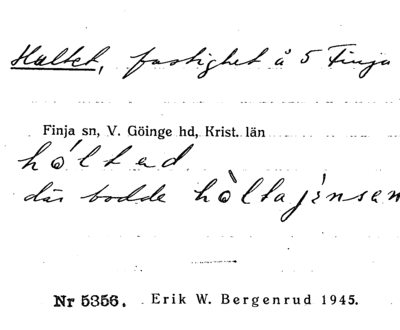 Hultet, fastighet å 5 Finja
Finja sn, V. Göinge hd, Krist. län
hóltad
där bodde hòltajénsen
Nr 5356. Erik W. Bergenrud 1945.